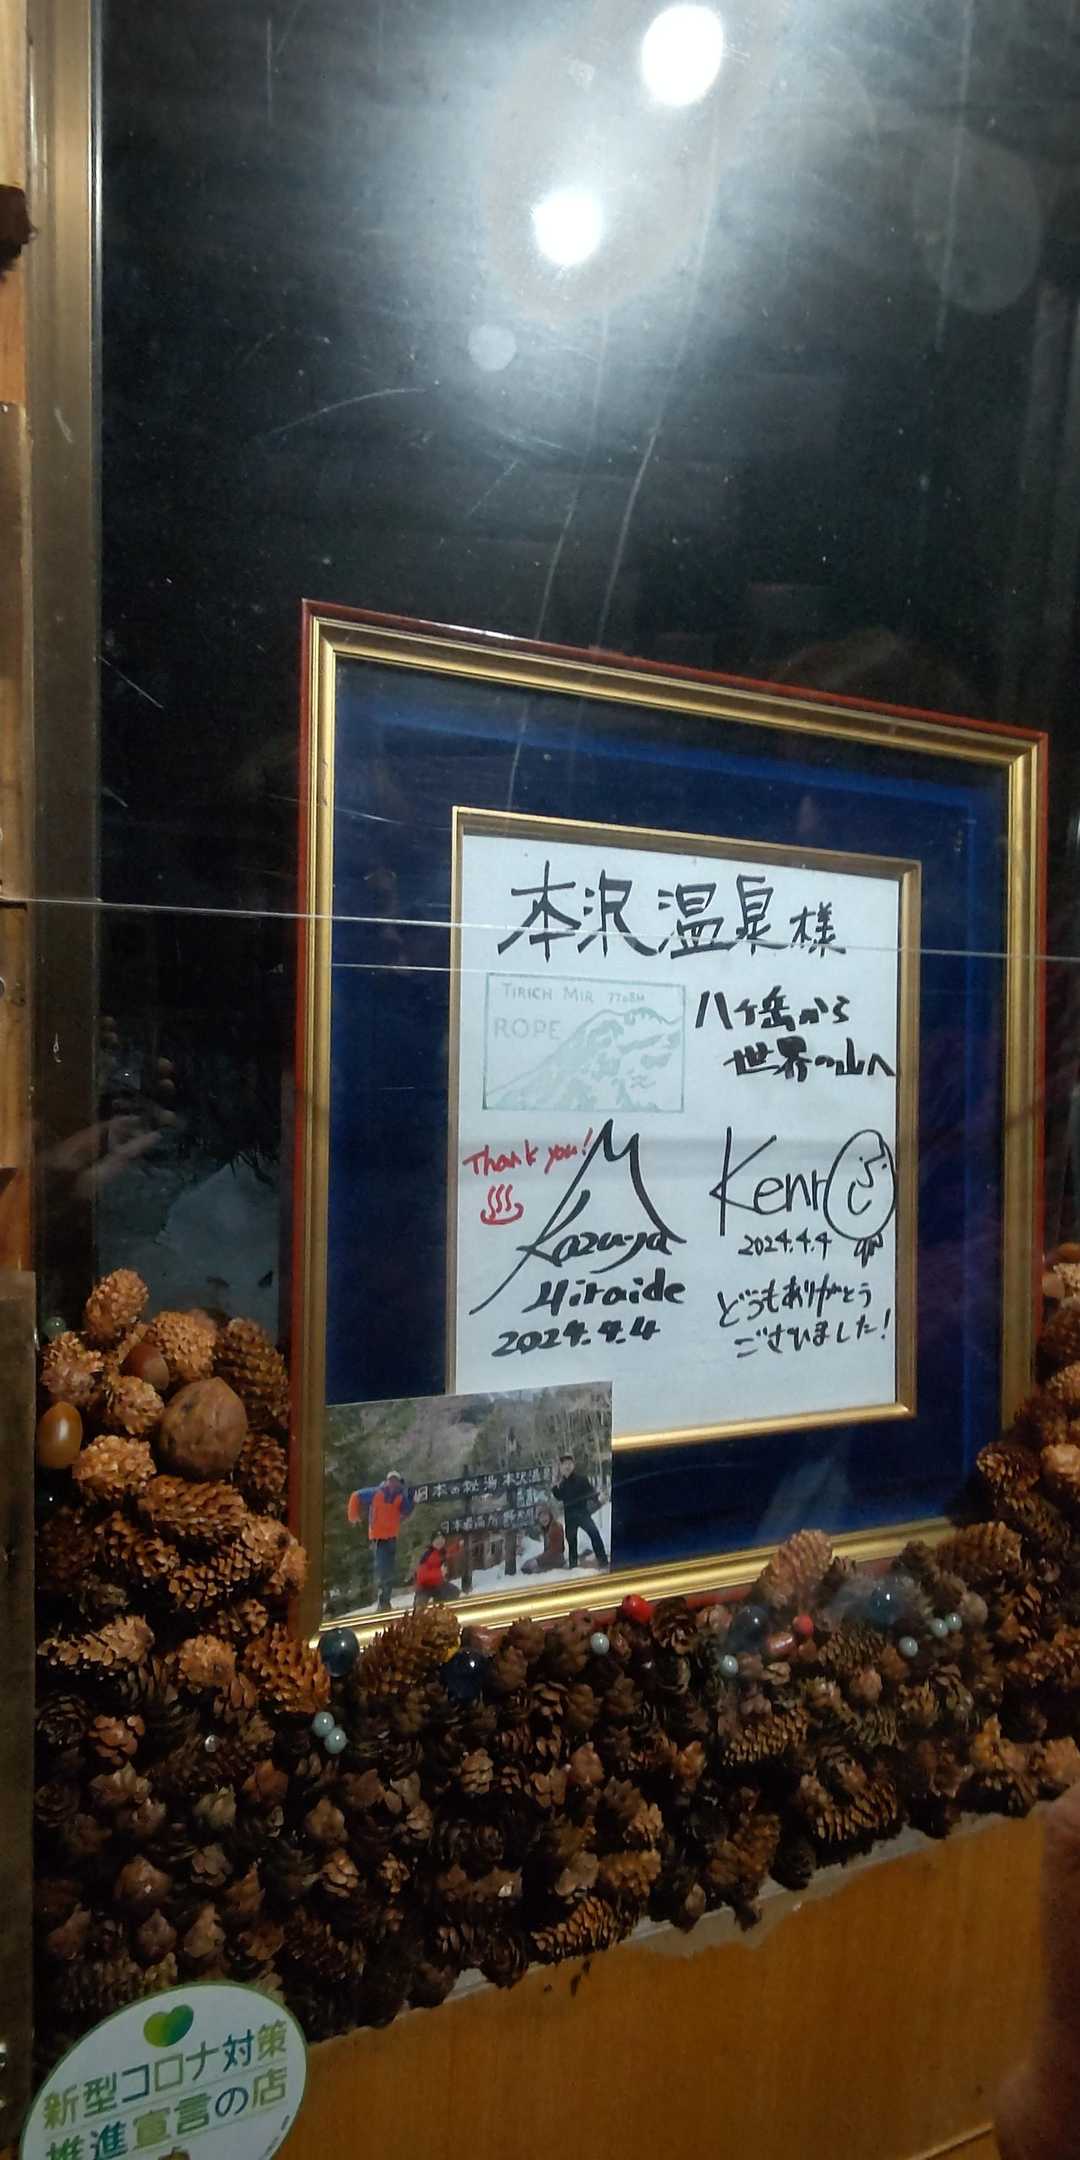 本沢温泉様
TIRICH MIR 7708M
ROPE
八ヶ岳から
世界の山へ
Thank you!
Kazuya
Hiraide
2024.4.4
Kenro
2024.4.4
どうもありがとう
ございました!
日本の秘湯 本沢温泉
日本最高所 野天風呂
新型コロナ対策
推進宣言の店